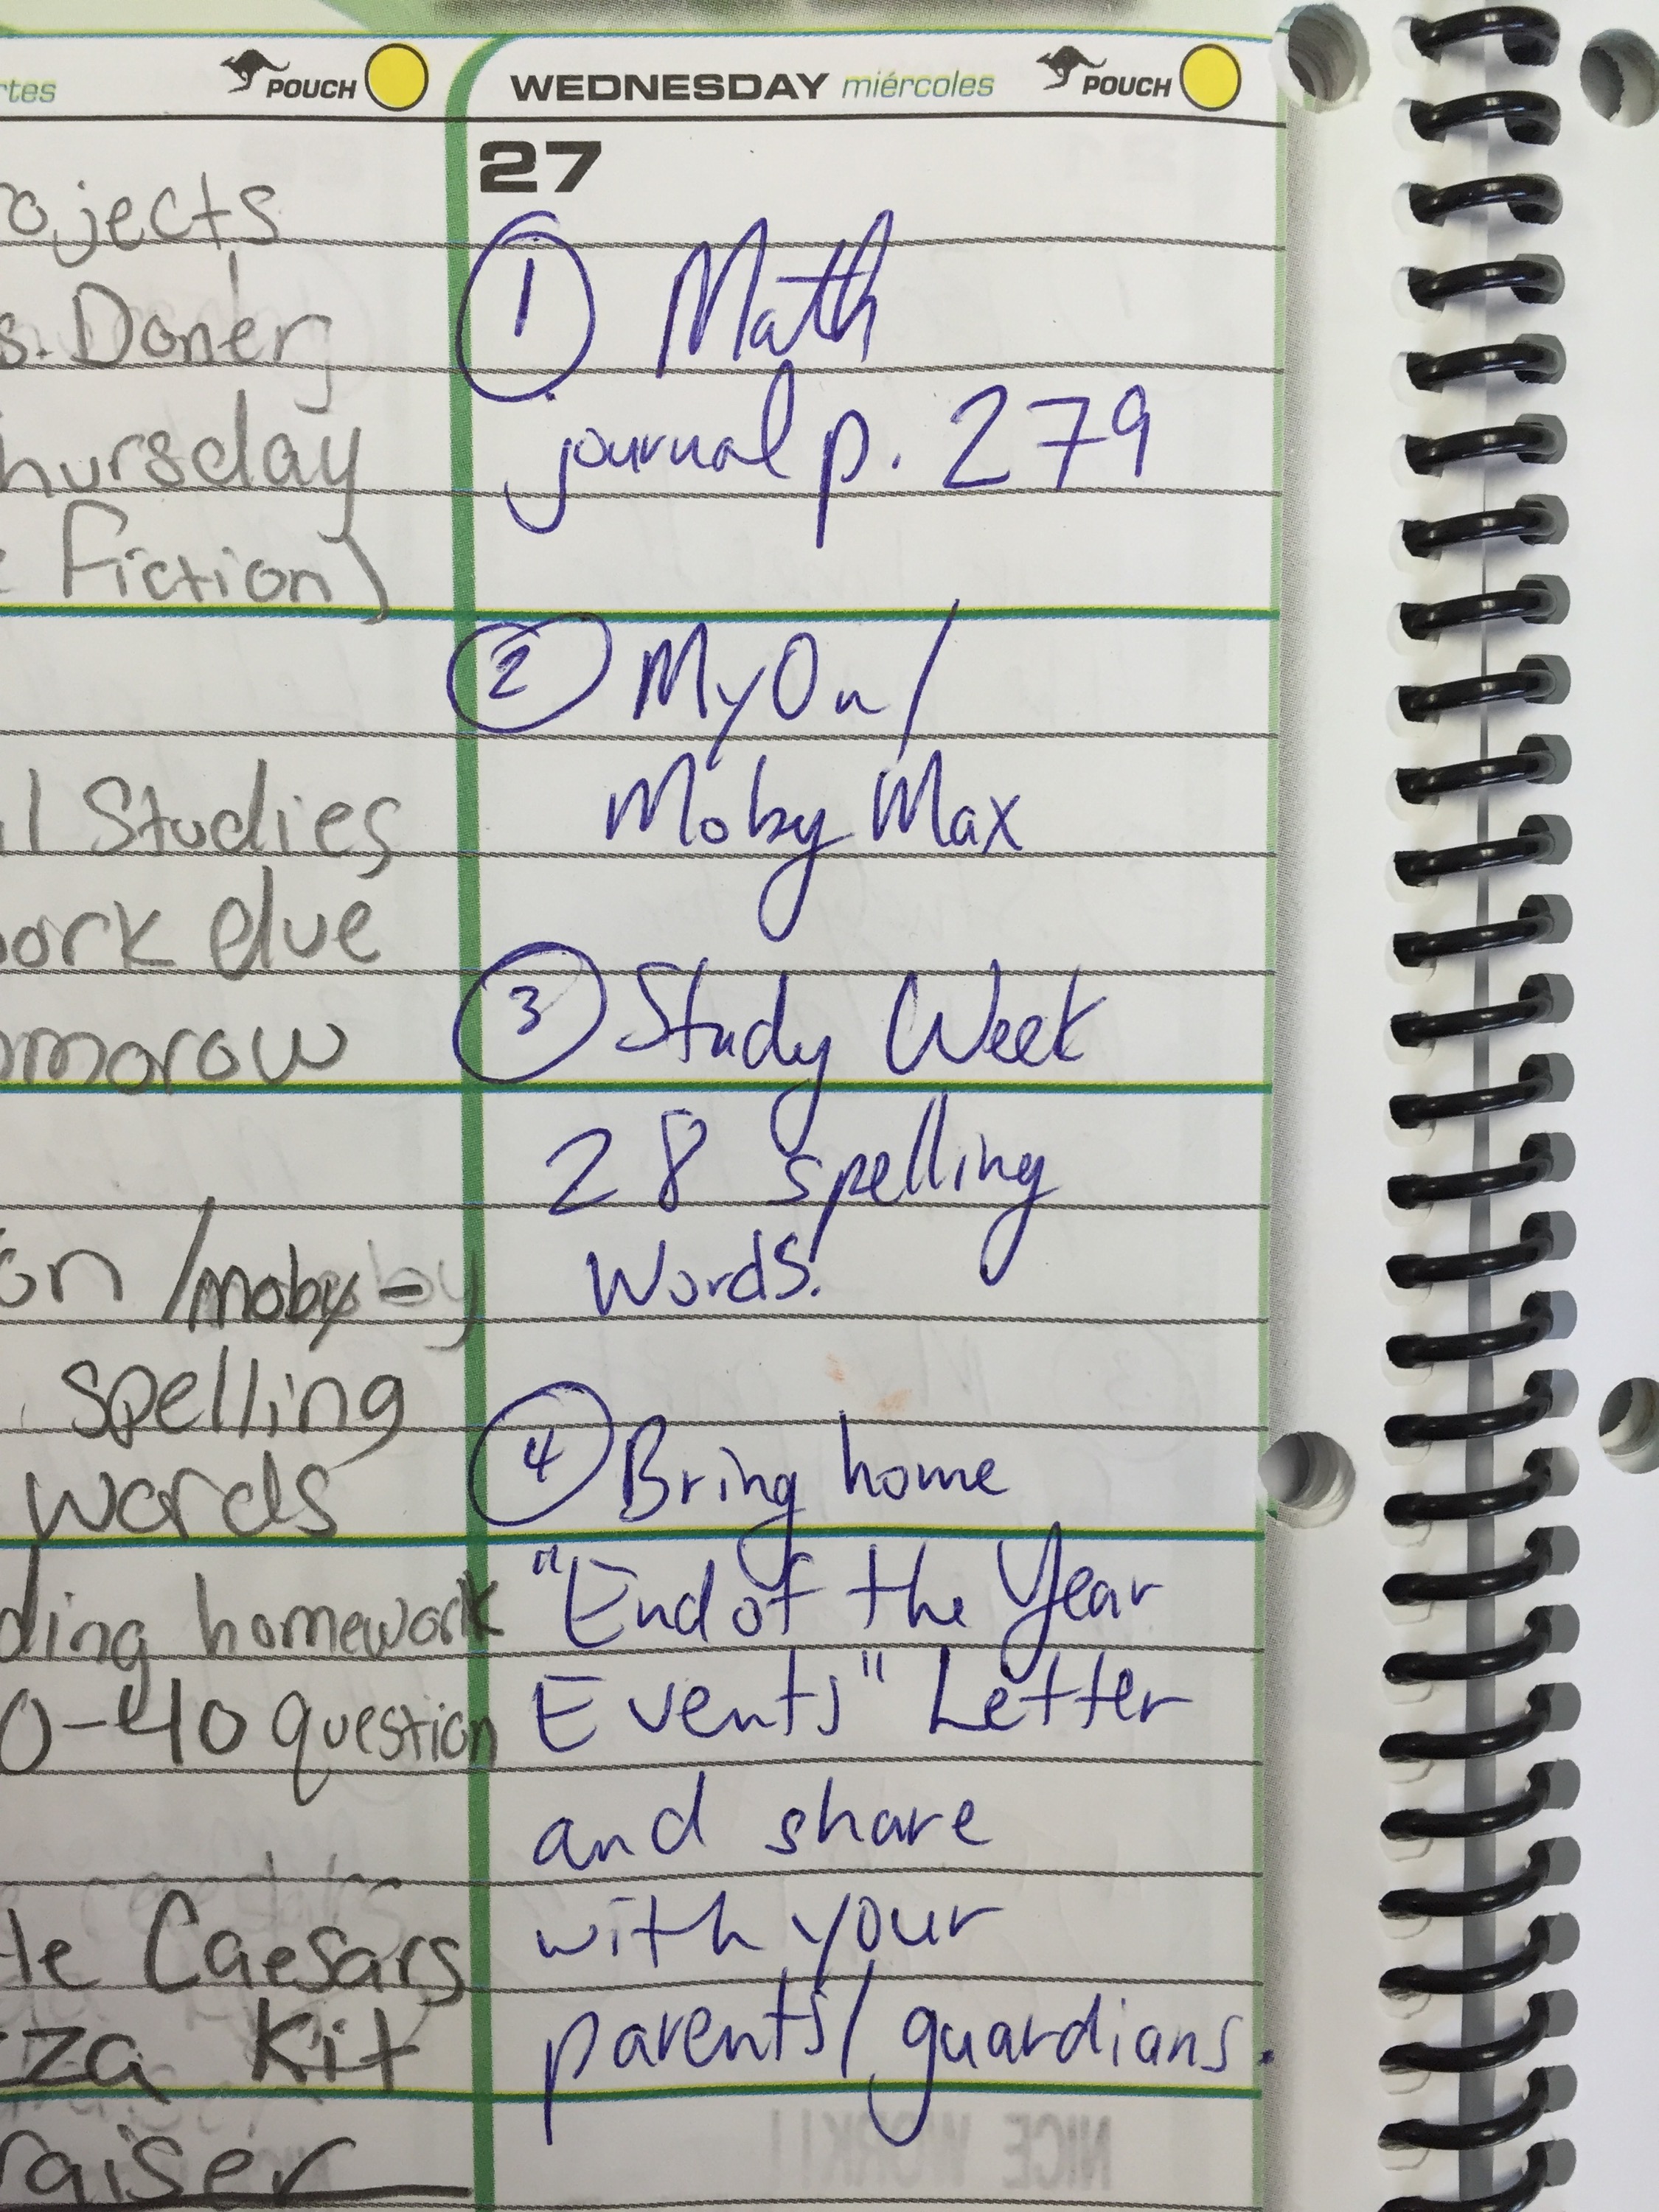 rtes POUCH
ojects
s. Doner
hursday
Fiction)
l Studies
ork due
omorow
on /moby-
spelling
words
ding homework
0-40 question
le Caesars
zza Kit
raiser
WEDNESDAY miércoles POUCH
27
1 Math
journal p. 279
2 MyOn/
Moby Max
3 Study Week
28 spelling
words!
4 Bring home
"End of the Year
Events" Letter
and share
with your
parents/guardians.
NICE WORK!!